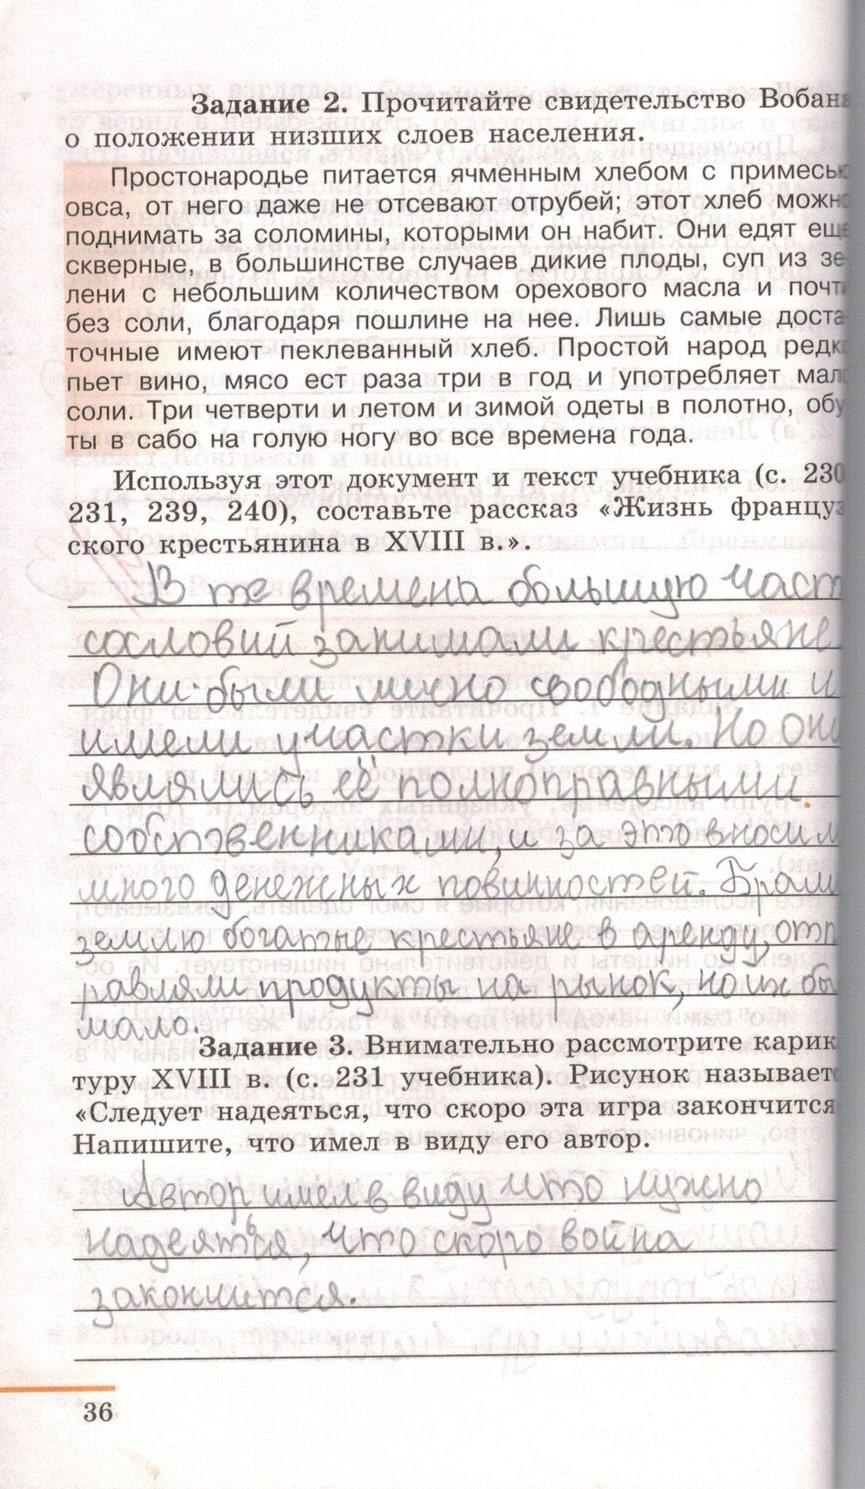 Задание 2. Прочитайте свидетельство Вобана
о положении низших слоев населения.
Простонародье питается ячменным хлебом с примесью
овса, от него даже не отсевают отрубей; этот хлеб можно
поднимать за соломины, которыми он набит. Они едят еще
скверные, в большинстве случаев дикие плоды, суп из зе-
лени с небольшим количеством орехового масла и почти
без соли, благодаря пошлине на нее. Лишь самые доста-
точные имеют пеклеванный хлеб. Простой народ редко
пьет вино, мясо ест раза три в год и употребляет мало
соли. Три четверти и летом и зимой одеты в полотно, обу
ты в сабо на голую ногу во все времена года.
Используя этот документ и текст учебника (с. 230
231, 239, 240), составьте рассказ «Жизнь француз
ского крестьянина в XVIII в.».
В те времена большую част
сословий занимали крестьяне
Они были лично свободными и
имели участки земли. Но они
являлись её полноправными
собственниками, и за это вносил
много денежных повинностей. Брали
землю богатые крестьяне в аренду, отп
равляли продукты на рынок, но их бы
мало.
Задание 3. Внимательно рассмотрите карик
туру XVIII в. (с. 231 учебника). Рисунок называет
«Следует надеяться, что скоро эта игра закончится
Напишите, что имел в виду его автор.
Автор имел в виду что нужно
надеяться, что скоро война
закончится.
36